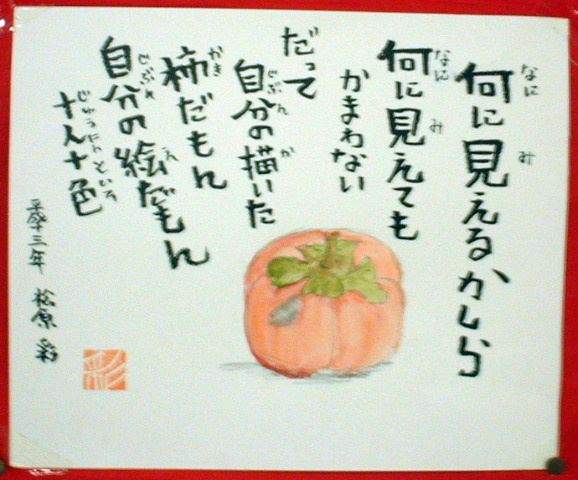 何に見えるかしら
何に見えても
かまわない
だって
自分の描いた
柿だもん
自分の絵だもん
十人十色
平成十三年 松原 彩